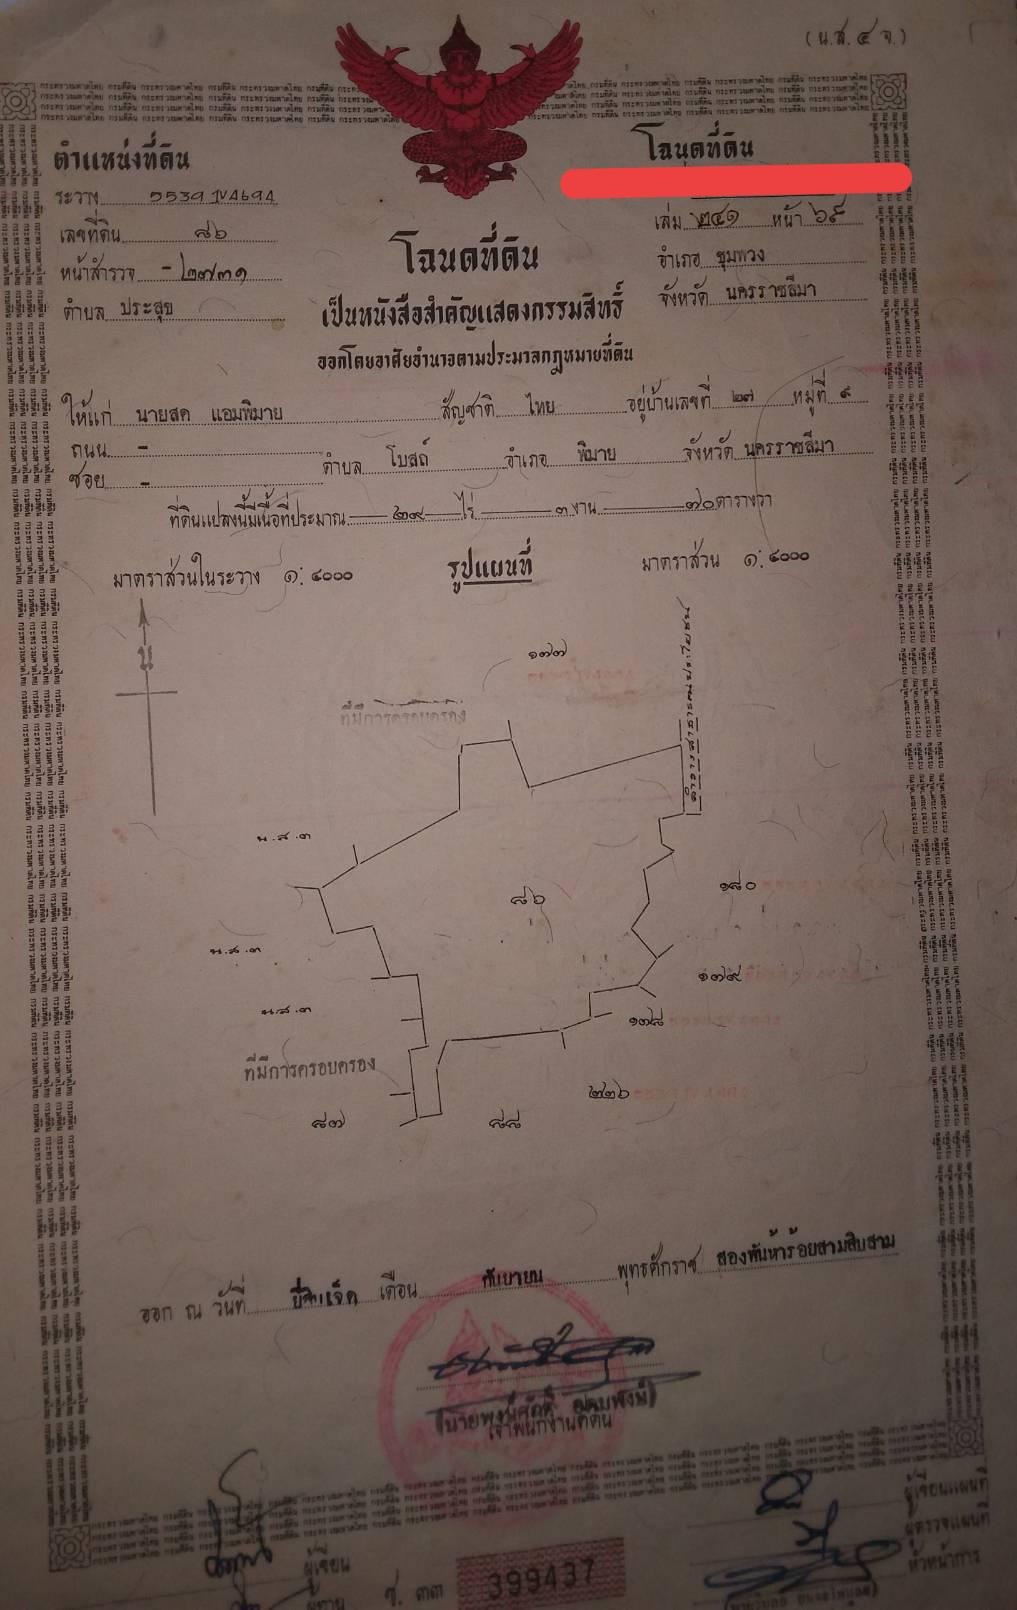 (น.ส.๔ จ.)
ตำแหน่งที่ดิน
ระวาง 5539 IV 4694
เลขที่ดิน ๘๖
หน้าสำรวจ - ๒๗๓๑
ตำบล ประสุข
โฉนดที่ดิน
เล่ม ๒๔๑ หน้า ๖๙
อำเภอ ชุมพวง
จังหวัด นครราชสีมา
โฉนดที่ดิน
เป็นหนังสือสำคัญแสดงกรรมสิทธิ์
ออกโดยอาศัยอำนาจตามประมวลกฎหมายที่ดิน
ให้แก่ นายสด แอมพิมาย สัญชาติ ไทย อยู่บ้านเลขที่ ๒๗ หมู่ที่ ๙
ถนน -
ซอย - ตำบล โบสถ์ อำเภอ พิมาย จังหวัด นครราชสีมา
ที่ดินแปลงนี้มีเนื้อที่ประมาณ ๒๙ ไร่ ๓ งาน ๗๐ ตารางวา
มาตราส่วนในระวาง ๑:๔๐๐๐ รูปแผนที่ มาตราส่วน ๑:๔๐๐๐
น
๑๗๗
ที่มีการครอบครอง
ลำรางสาธารณประโยชน์
น.ส.๓
๘๖
๑๘๐
น.ส.๓
๑๗๙
น.ส.๓
๑๗๘
ที่มีการครอบครอง
๒๒๖
๘๗
๘๘
ออก ณ วันที่ ยี่สิบเจ็ด เดือน กันยายน พุทธศักราช สองพันห้าร้อยสามสิบสาม
เจ้าพนักงานที่ดิน
ผู้เขียนแผนที่
ผู้ตรวจแผนที่
หัวหน้าการ
ผู้เขียน
ผู้ทาน
ช. ๓๓ 399437